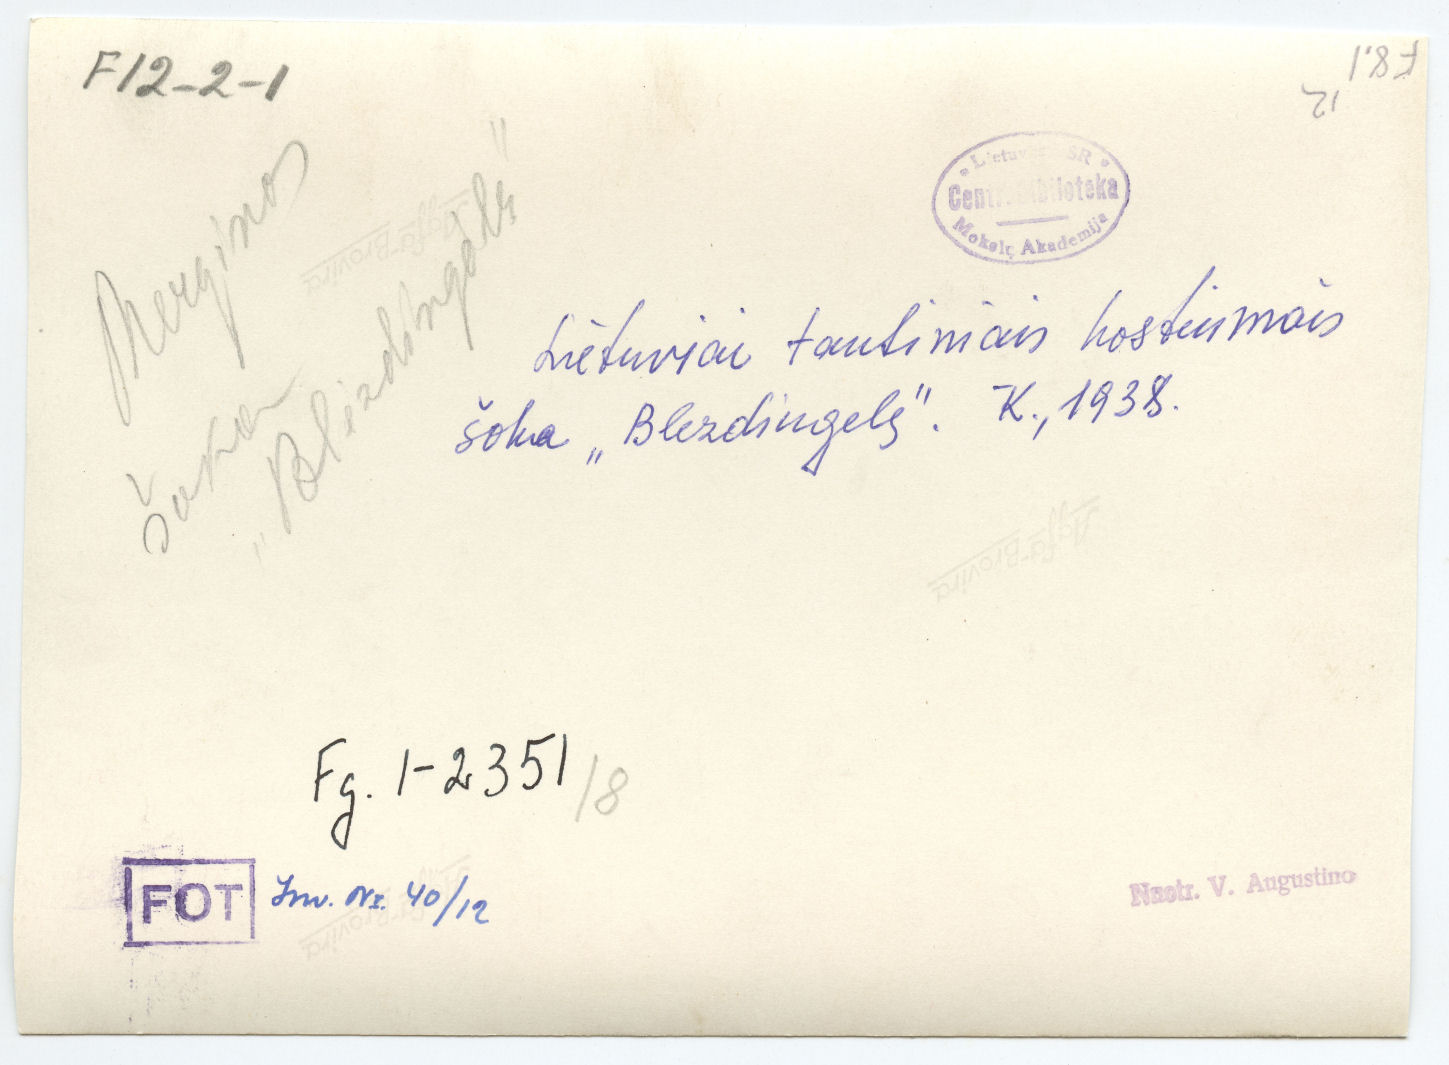 F12-2-1
F 8.1
12
Merginos
šoka
"Blezdingėlę"
Lietuvos SSR
Centr. Biblioteka
Mokslų Akademija
Lietuviai tautiniais kostiumais
šoka „Blezdingelę". K., 1938.
Agfa-Brovira
Agfa-Brovira
Fg. 1-2351/8
FOT
Inv. Nr. 40/12
Agfa-Brovira
Nuotr. V. Augustino